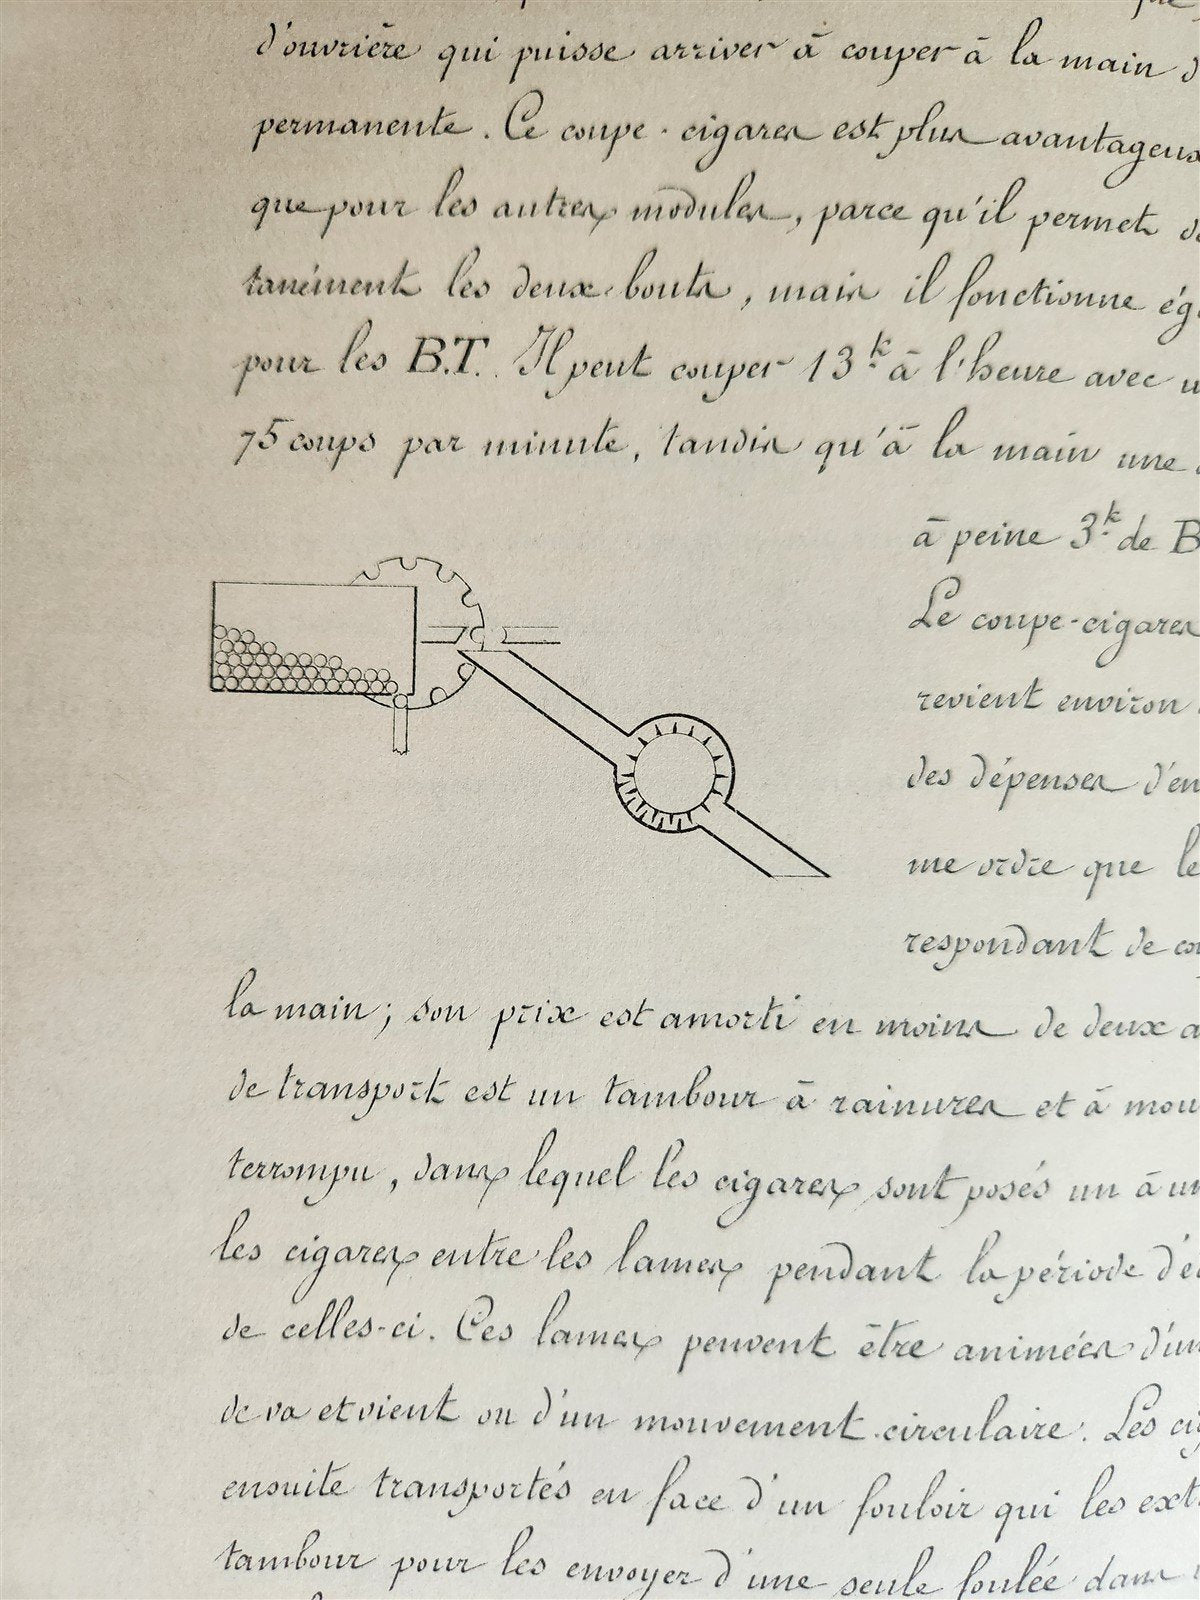 d'ouvrière qui puisse arriver à couper à la main d
permanente. Ce coupe-cigares est plus avantageux
que pour les autres modules, parce qu'il permet de
tanément les deux bouts, mais il fonctionne éga
pour les B.T. Il peut couper 13k. à l'heure avec u
75 coups par minute, tandis qu'à la main une
à peine 3k. de B
Le coupe-cigares
revient environ
des dépenses d'en
me ordre que le
respondant de cou
la main; son prix est amorti en moins de deux a
de transport est un tambour à rainures et à mou
terrompu, dans lequel les cigares sont posés un à un
les cigares entre les lames pendant la période d'éc
de celles-ci. Ces lames peuvent être animées d'un
de va et vient ou d'un mouvement circulaire. Les cig
ensuite transportés en face d'un fouloir qui les ext
tambour pour les envoyer d'une seule foulée dans